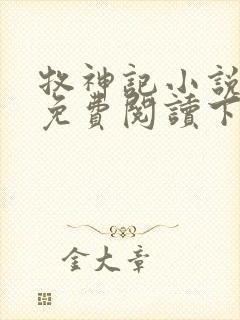 牧神記小說
免費閱讀下
金大章